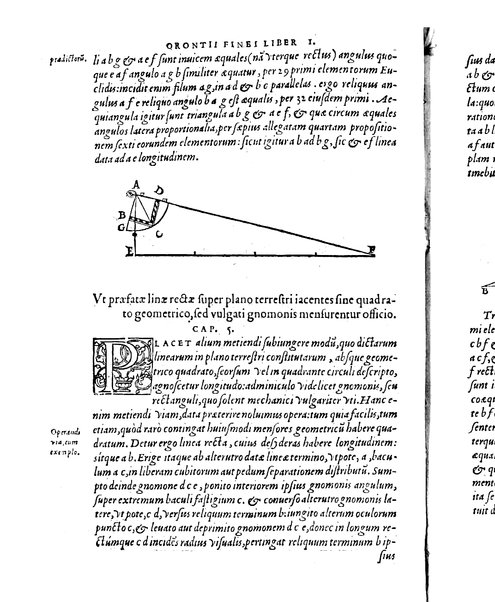 ORONTII FINEI LIBER I.
prædictorũ.
li a b g & a e f sunt inuicem æquales (nã vterque rectus) angulus quo-
que e a f angulo a g b similiter æquatur, per 29 primi elementorum Eu-
clidis: incidit enim filum a g, in a d & b c parallelas. ergo reliquus an-
gulus a f e reliquo angulo b a g est æqualis, per 32 eiusdem primi. Ae-
quiangula igitur sunt triangula a b g & a e f, & quæ circum æquales
angulos latera proportionalia, per sæpius allegatam quartam propositio-
nem sexti eorundem elementorum: sicut igitur a b ad b g, sic & e f linea
data ad a e longitudinem.
A
D
B
G
C
E
F
Vt præfatæ linæ rectæ super plano terrestri iacentes sine quadra-
to geometrico, sed vulgati gnomonis mensurentur officio.
CAP. 5.
PLACET alium metiendi subiungere modũ, quo dictarum
linearum in plano terrestri constitutarum, absque geome-
trico quadrato, seorsum vel in quadrante circuli descripto,
agnoscetur longitudo: adminiculo videlicet gnomonis, seu
rectanguli, quo solent mechanici vulgariter vti. Hanc e-
nim metiendi viam, data præterire noluimus opera: tum quia facilis, tum
etiam, quòd rarò contingat huiusmodi mensores geometricũ habere qua-
Operandi
via, cum
exemplo.
dratum. Detur ergo linea recta, cuius desideras habere longitudinem:
sitque a b. Erige itaque ab alterutro datæ lineæ termino, vt pote, a, bacu-
lum a c, in liberam cubitorum aut pedum separationem distributũ. Sum-
pto deinde gnomone d c e, ponito interiorem ipsius gnomonis angulum,
super extremum baculi fastigium c. & conuerso alterutro gnomonis la-
tere, vt pote, c d, versus reliquum terminum b: iungito alterum oculorum
puncto c, & leuato aut deprimito gnomonem d c e, donec in longum re-
ctúmque c d incidẽs radius visualis, pertingat reliquum terminum b ip-
sius